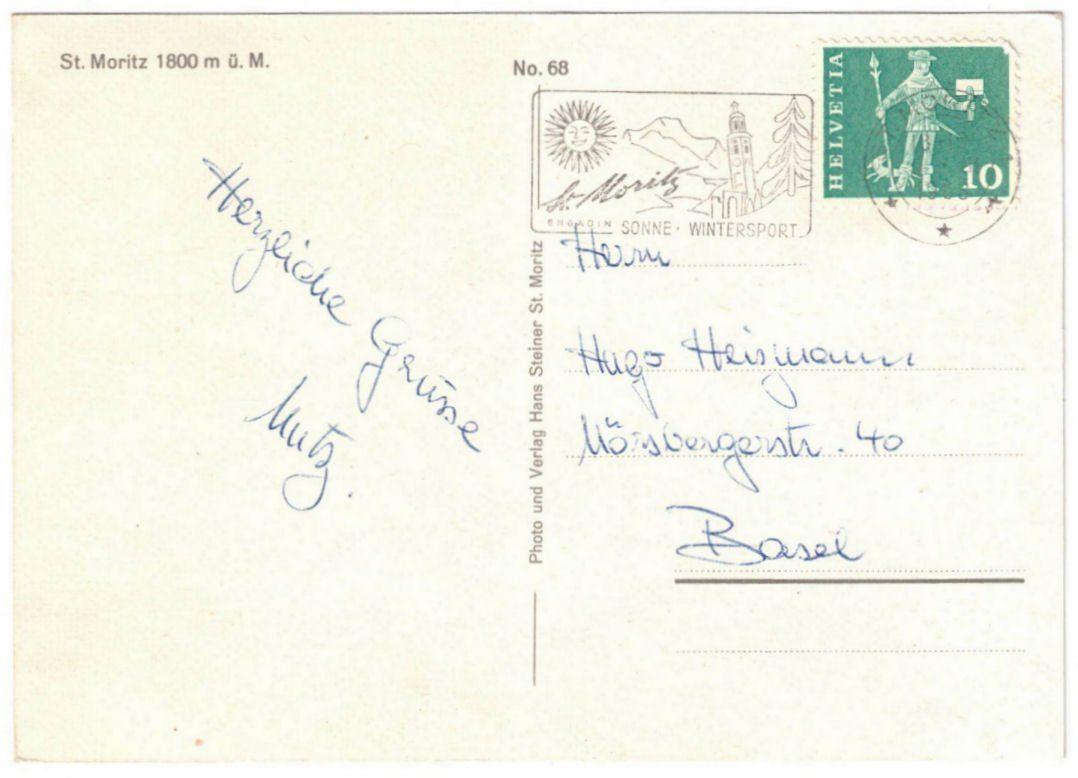 St. Moritz 1800 m ü. M.
No. 68
St. Moritz
ENGADIN SONNE · WINTERSPORT
HELVETIA
10
Herzliche Grüsse
Mutz.
Photo und Verlag Hans Steiner St. Moritz
Herrn
Hugo Heizmann
Mörsbergerstr. 40
Basel